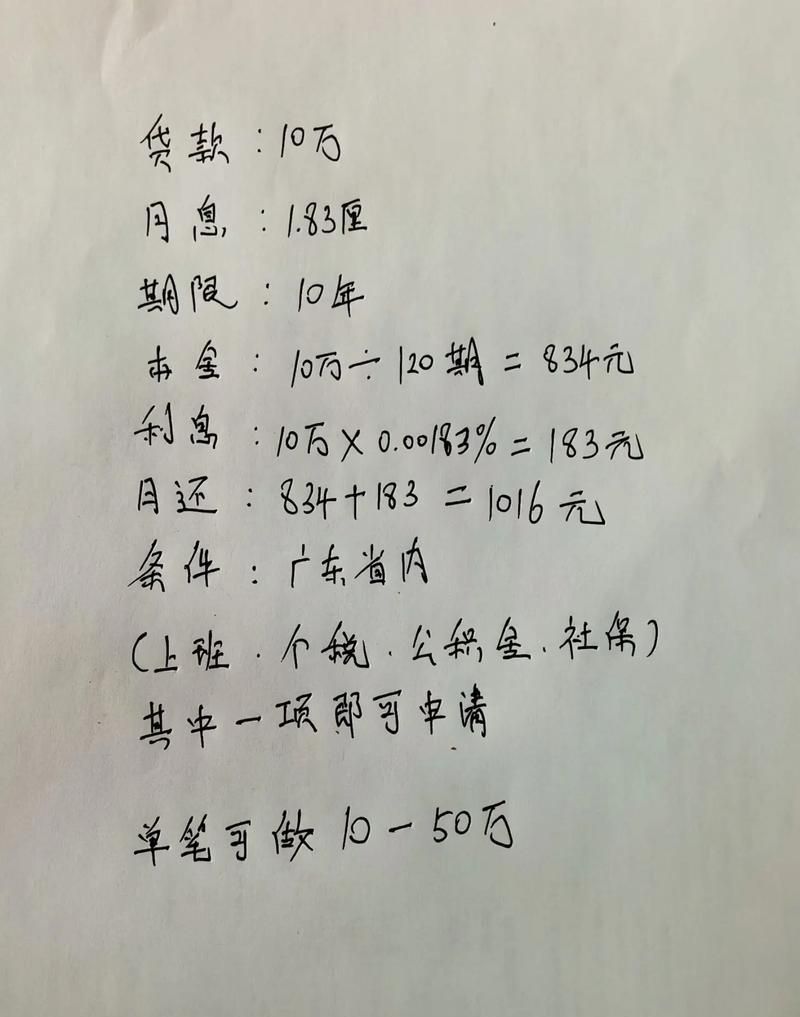 贷款：10万
月息：1.83厘
期限：10年
本金：10万÷120期=834元
利息：10万×0.00183%=183元
月还：834+183=1016元
条件：广东省内
(上班.个税.公积金.社保)
其中一项即可申请
单笔可做10-50万